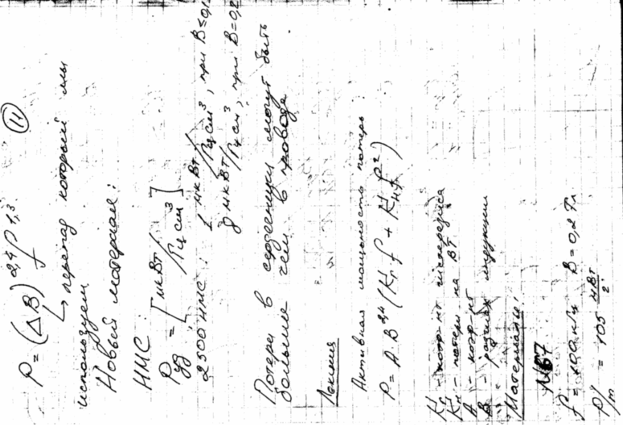 11
P = (ΔB)^2,4 f^1,3
↳ перепад который мы
используем
Новый материал:
НМС
P_уд = [мкВт/Гц см³]
2500 НМС: 1 мкВт/Гц см³, при B=0,1
8 мкВт/Гц см³, при B=0,2
Потери в сердечнике могут быть
больше чем в проводе
Лекция
Активная мощность потерь
P = A·B (K_г f + K_ f²)
K_г - коэф-нт гистерезиса
K - потери на ВТ
A - коэф-нт
B - индукции
Материалы:
f = 100 кГц B = 0,2 Тл
P/m = 105